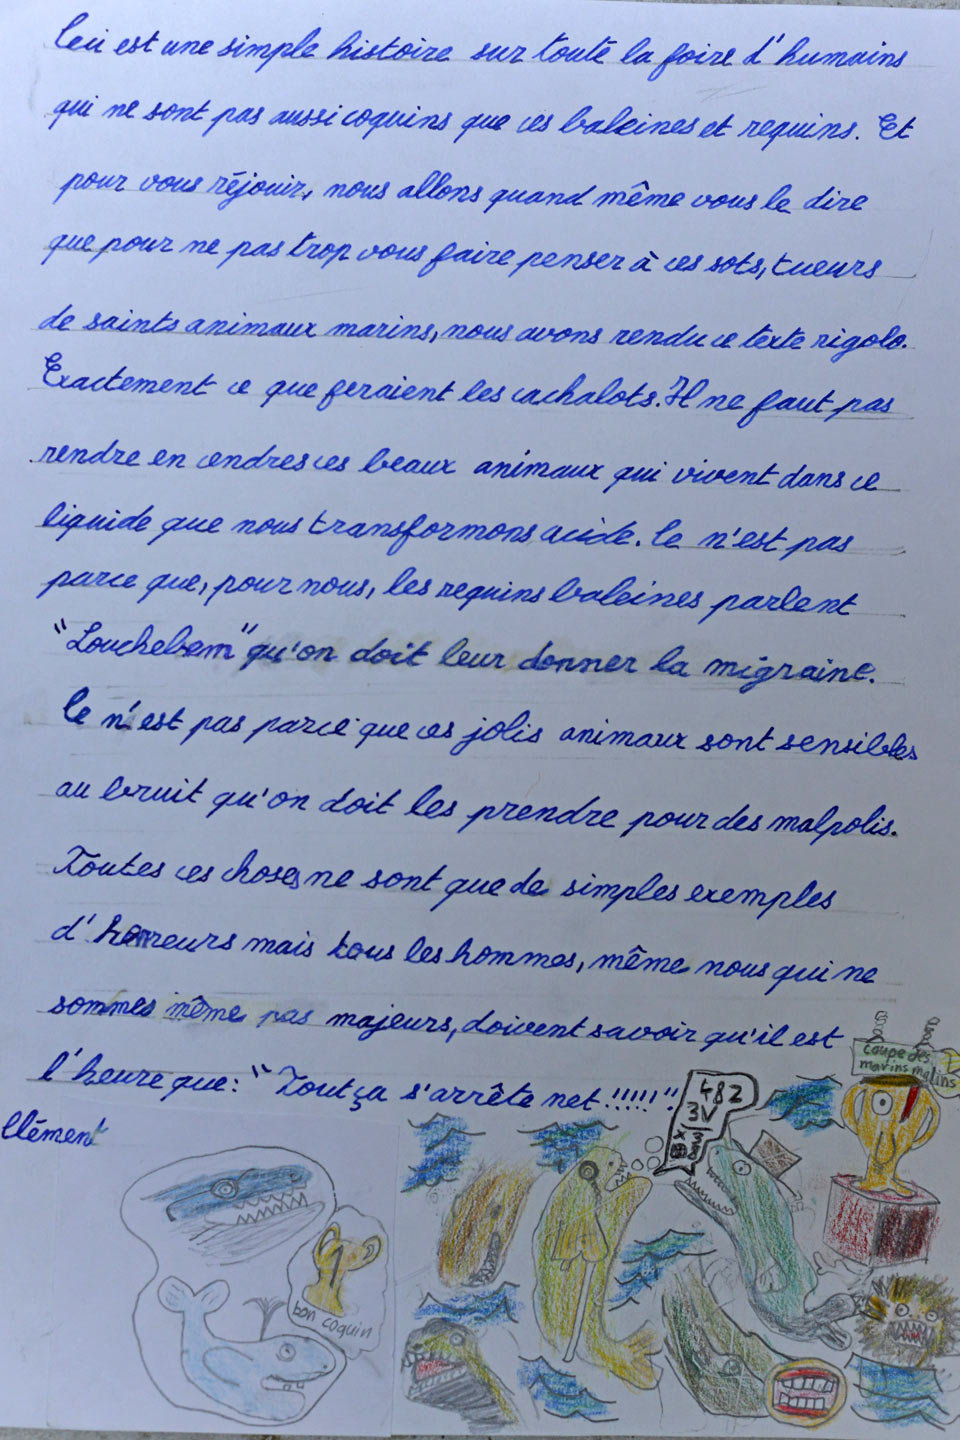 Ceci est une simple histoire sur toute la foire d'humains
qui ne sont pas aussi coquins que ces baleines et requins. Et
pour vous réjouir, nous allons quand même vous le dire
que pour ne pas trop vous faire penser à ces sots, tueurs
de saints animaux marins, nous avons rendu ce texte rigolo.
Exactement ce que feraient les cachalots. Il ne faut pas
rendre en cendres ces beaux animaux qui vivent dans ce
liquide que nous transformons acide. Ce n'est pas
parce que, pour nous, les requins baleines parlent
"Louchebem" qu'on doit leur donner la migraine.
Ce n'est pas parce que ces jolis animaux sont sensibles
au bruit qu'on doit les prendre pour des malpolis.
Toutes ces choses ne sont que de simples exemples
d'horreurs mais tous les hommes, même nous qui ne
sommes même pas majeurs, doivent savoir qu'il est
l'heure que: "Tout ça s'arrête net!!!!!"
Clément
coupe des
marins malins
482
3V
1
bon coquin